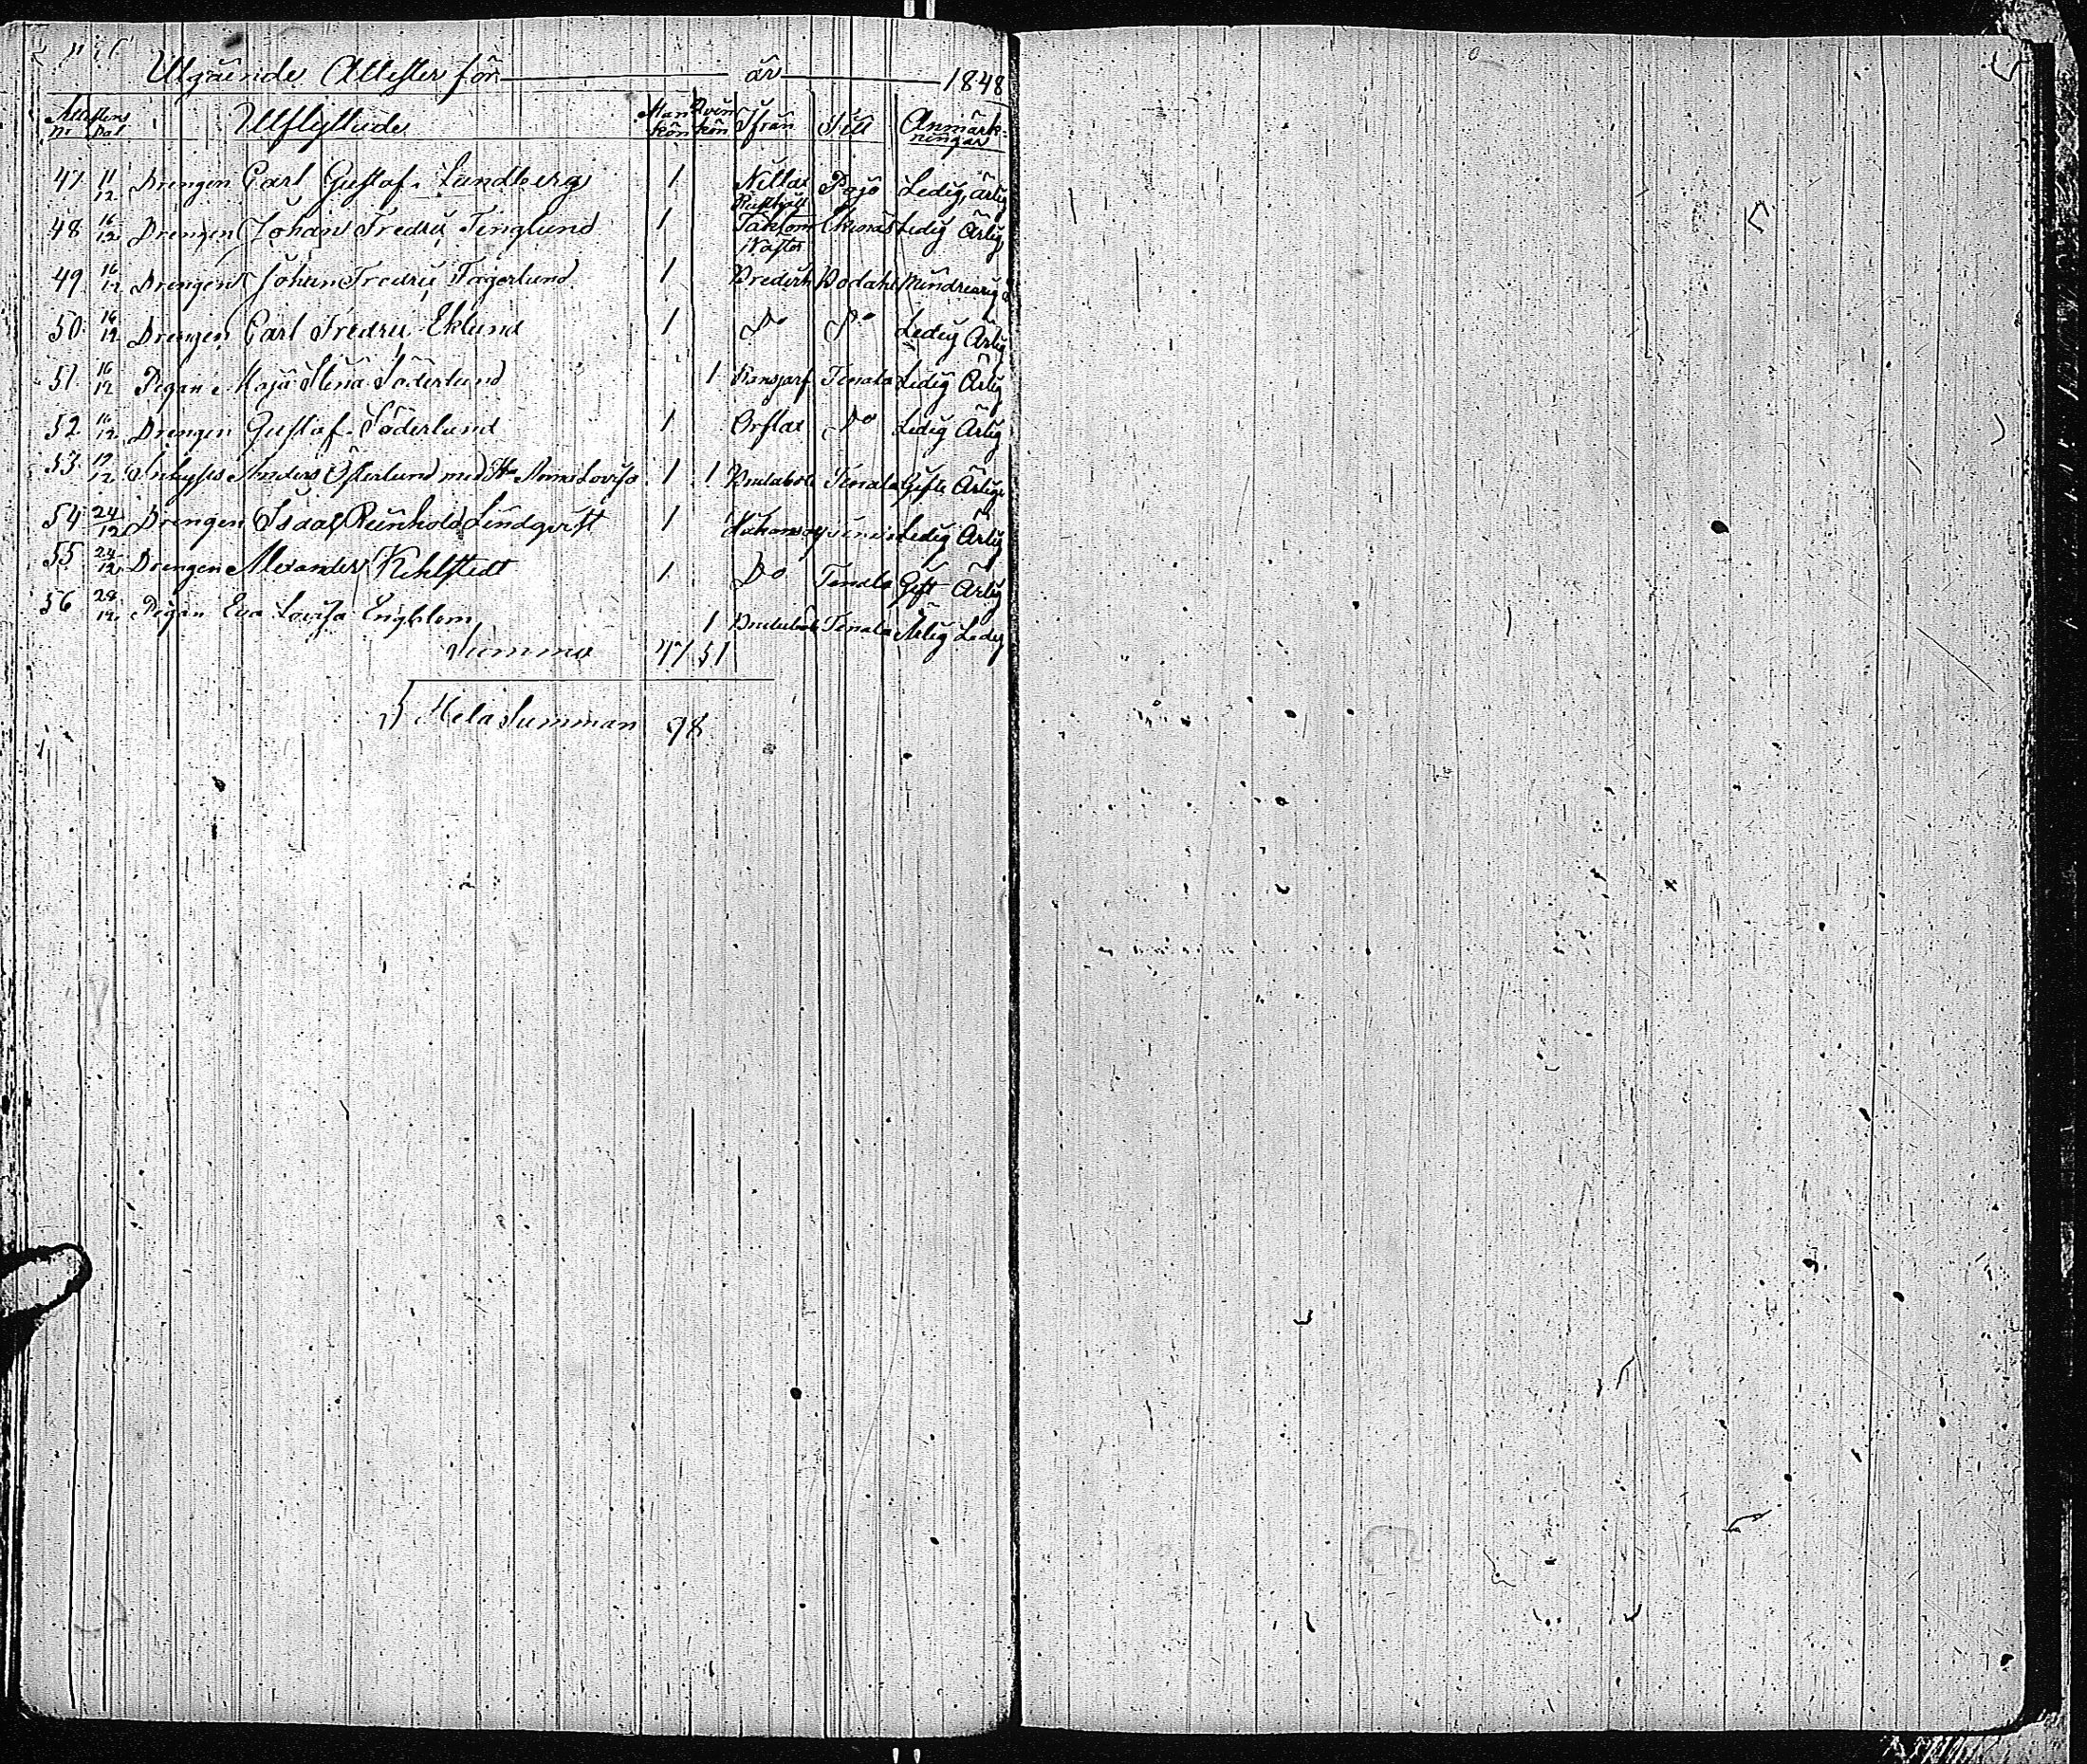 Utgående Attester för år 1848
Attestens Nr Dat Utflyttade Mankön Qvinkön Ifrån Till Anmärkningar
47 11/12 Drengen Carl Gustaf Lundberg 1 Pojo Ledig, ärlig
48 16/12 Drengen Johan Fredric Tenglund 1 Ekenäs Ledig Ärlig
49 16/12 Drengen Johan Fredric Fagerlund 1
50 16/12 Drengen Carl Fredric Eklund 1 Do Do Ledig Ärlig
51 16/12 Pigan Maja Stina Söderlund 1 Tenala Ledig Ärlig
52 16/12 Drengen Gustaf Söderlund 1 Orslax Do Ledig Ärlig
53 Anders Österlund med H. Anna Lovisa 1 1 Tenala Gifte Ärliga
54 24/12 Drengen Isaac Reinhold Lindqvist 1 Ledig Ärlig
55 24/12 Drengen Alexander Kihlstedt 1 Do Tenala Gift Ärlig
56 28/12 Pigan Eva Lovisa Engblom 1 Tenala Ärlig Ledig
Summa 47 51
Hela Summan 98